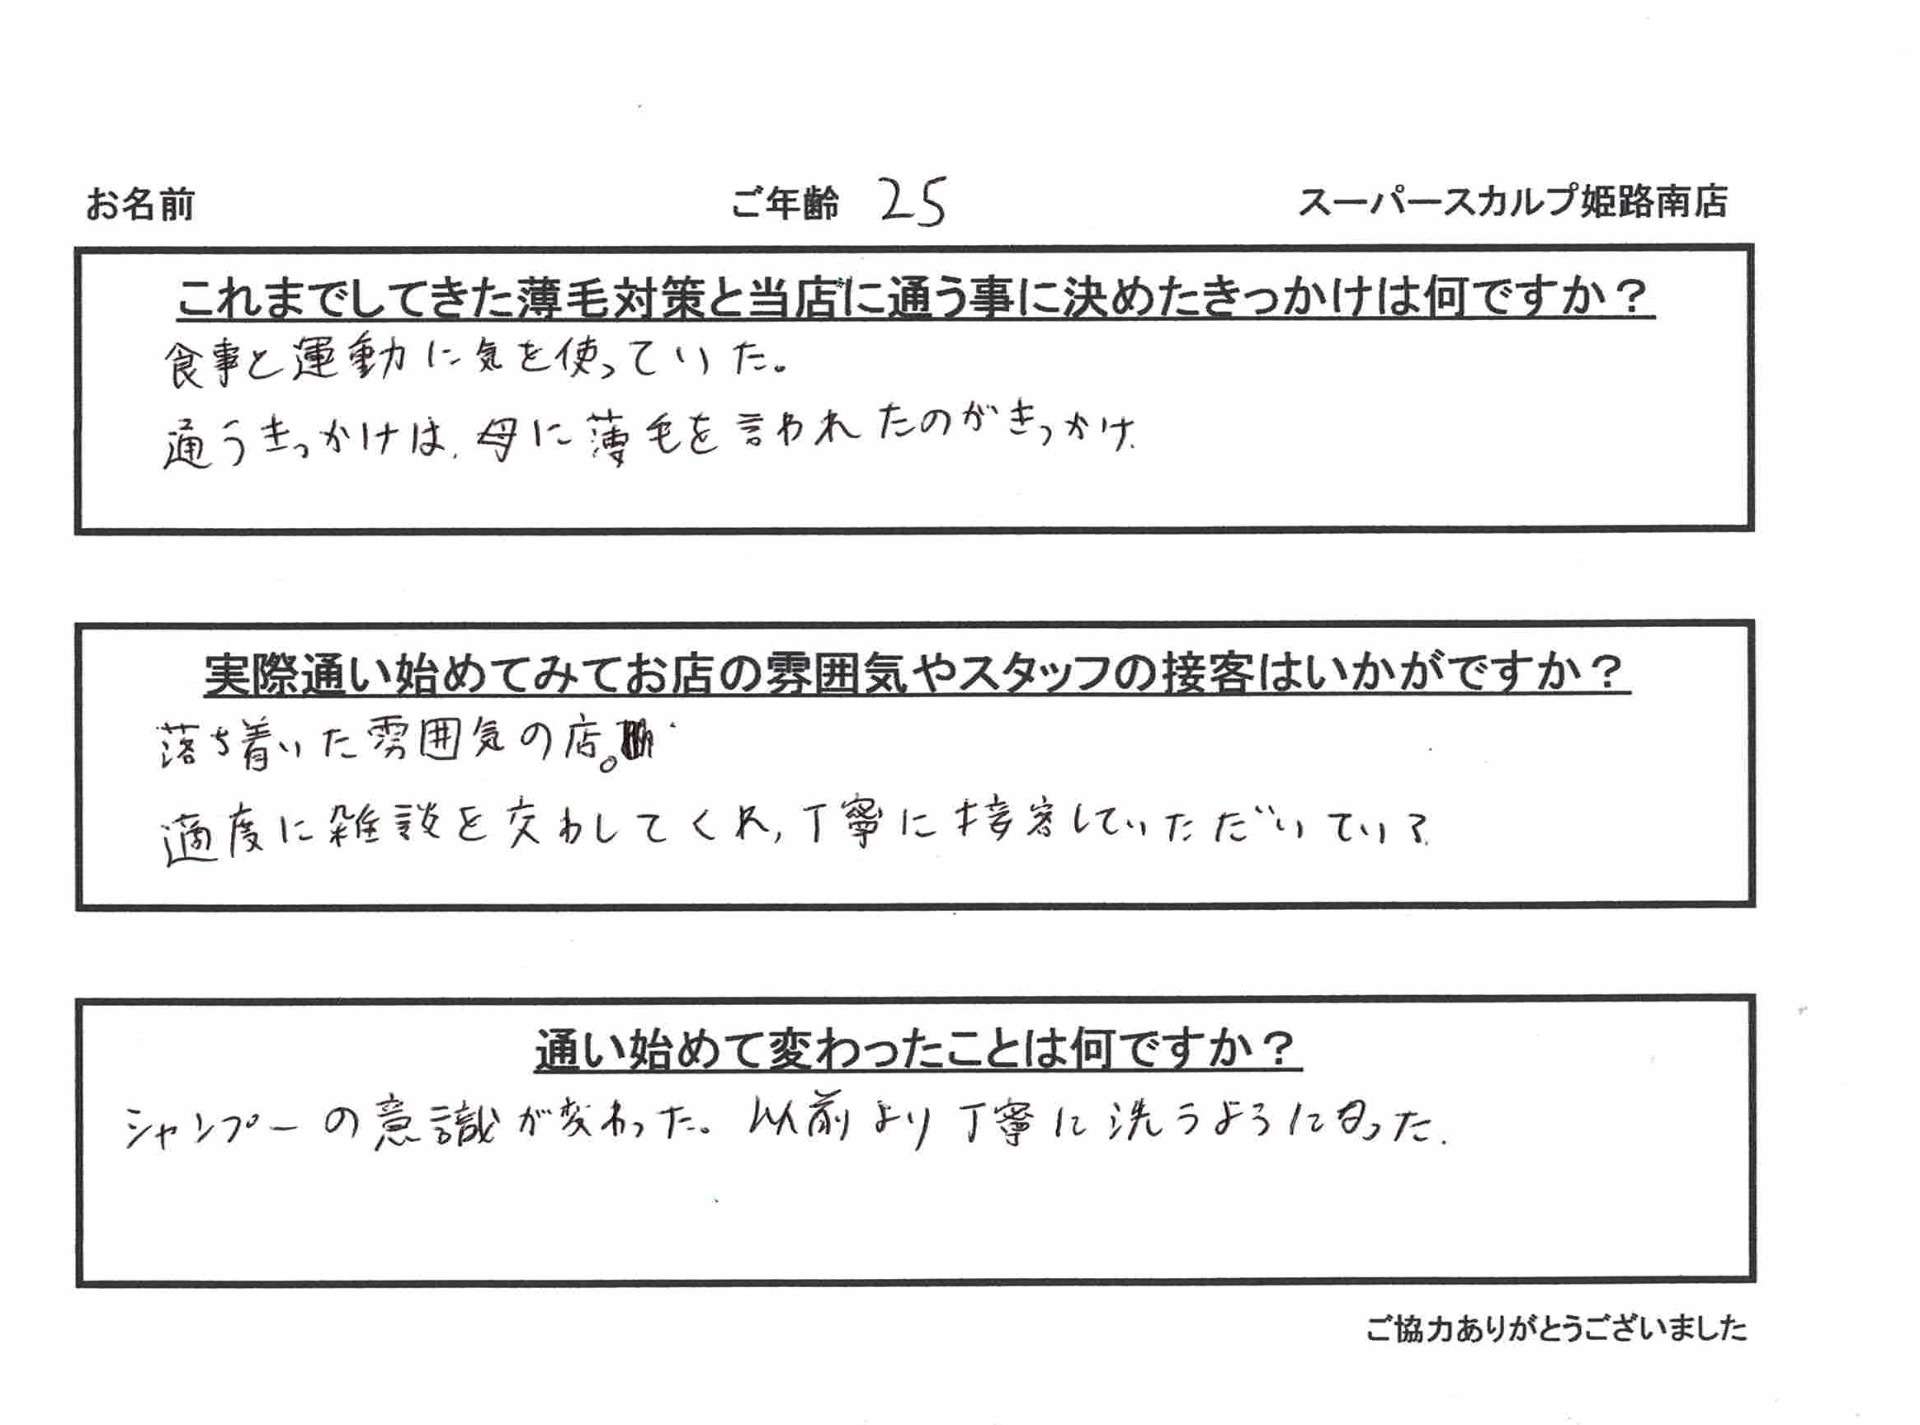 お名前 ご年齢 25 スーパースカルプ姫路南店
これまでしてきた薄毛対策と当店に通う事に決めたきっかけは何ですか？
食事と運動に気を使っていた。
通うきっかけは、母に薄毛を言われたのがきっかけ.
実際通い始めてみてお店の雰囲気やスタッフの接客はいかがですか？
落ち着いた雰囲気の店。
適度に雑談を交わしてくれ,丁寧に接客していただいている.
通い始めて変わったことは何ですか？
シャンプーの意識が変わった。以前より丁寧に洗うようになった.
ご協力ありがとうございました